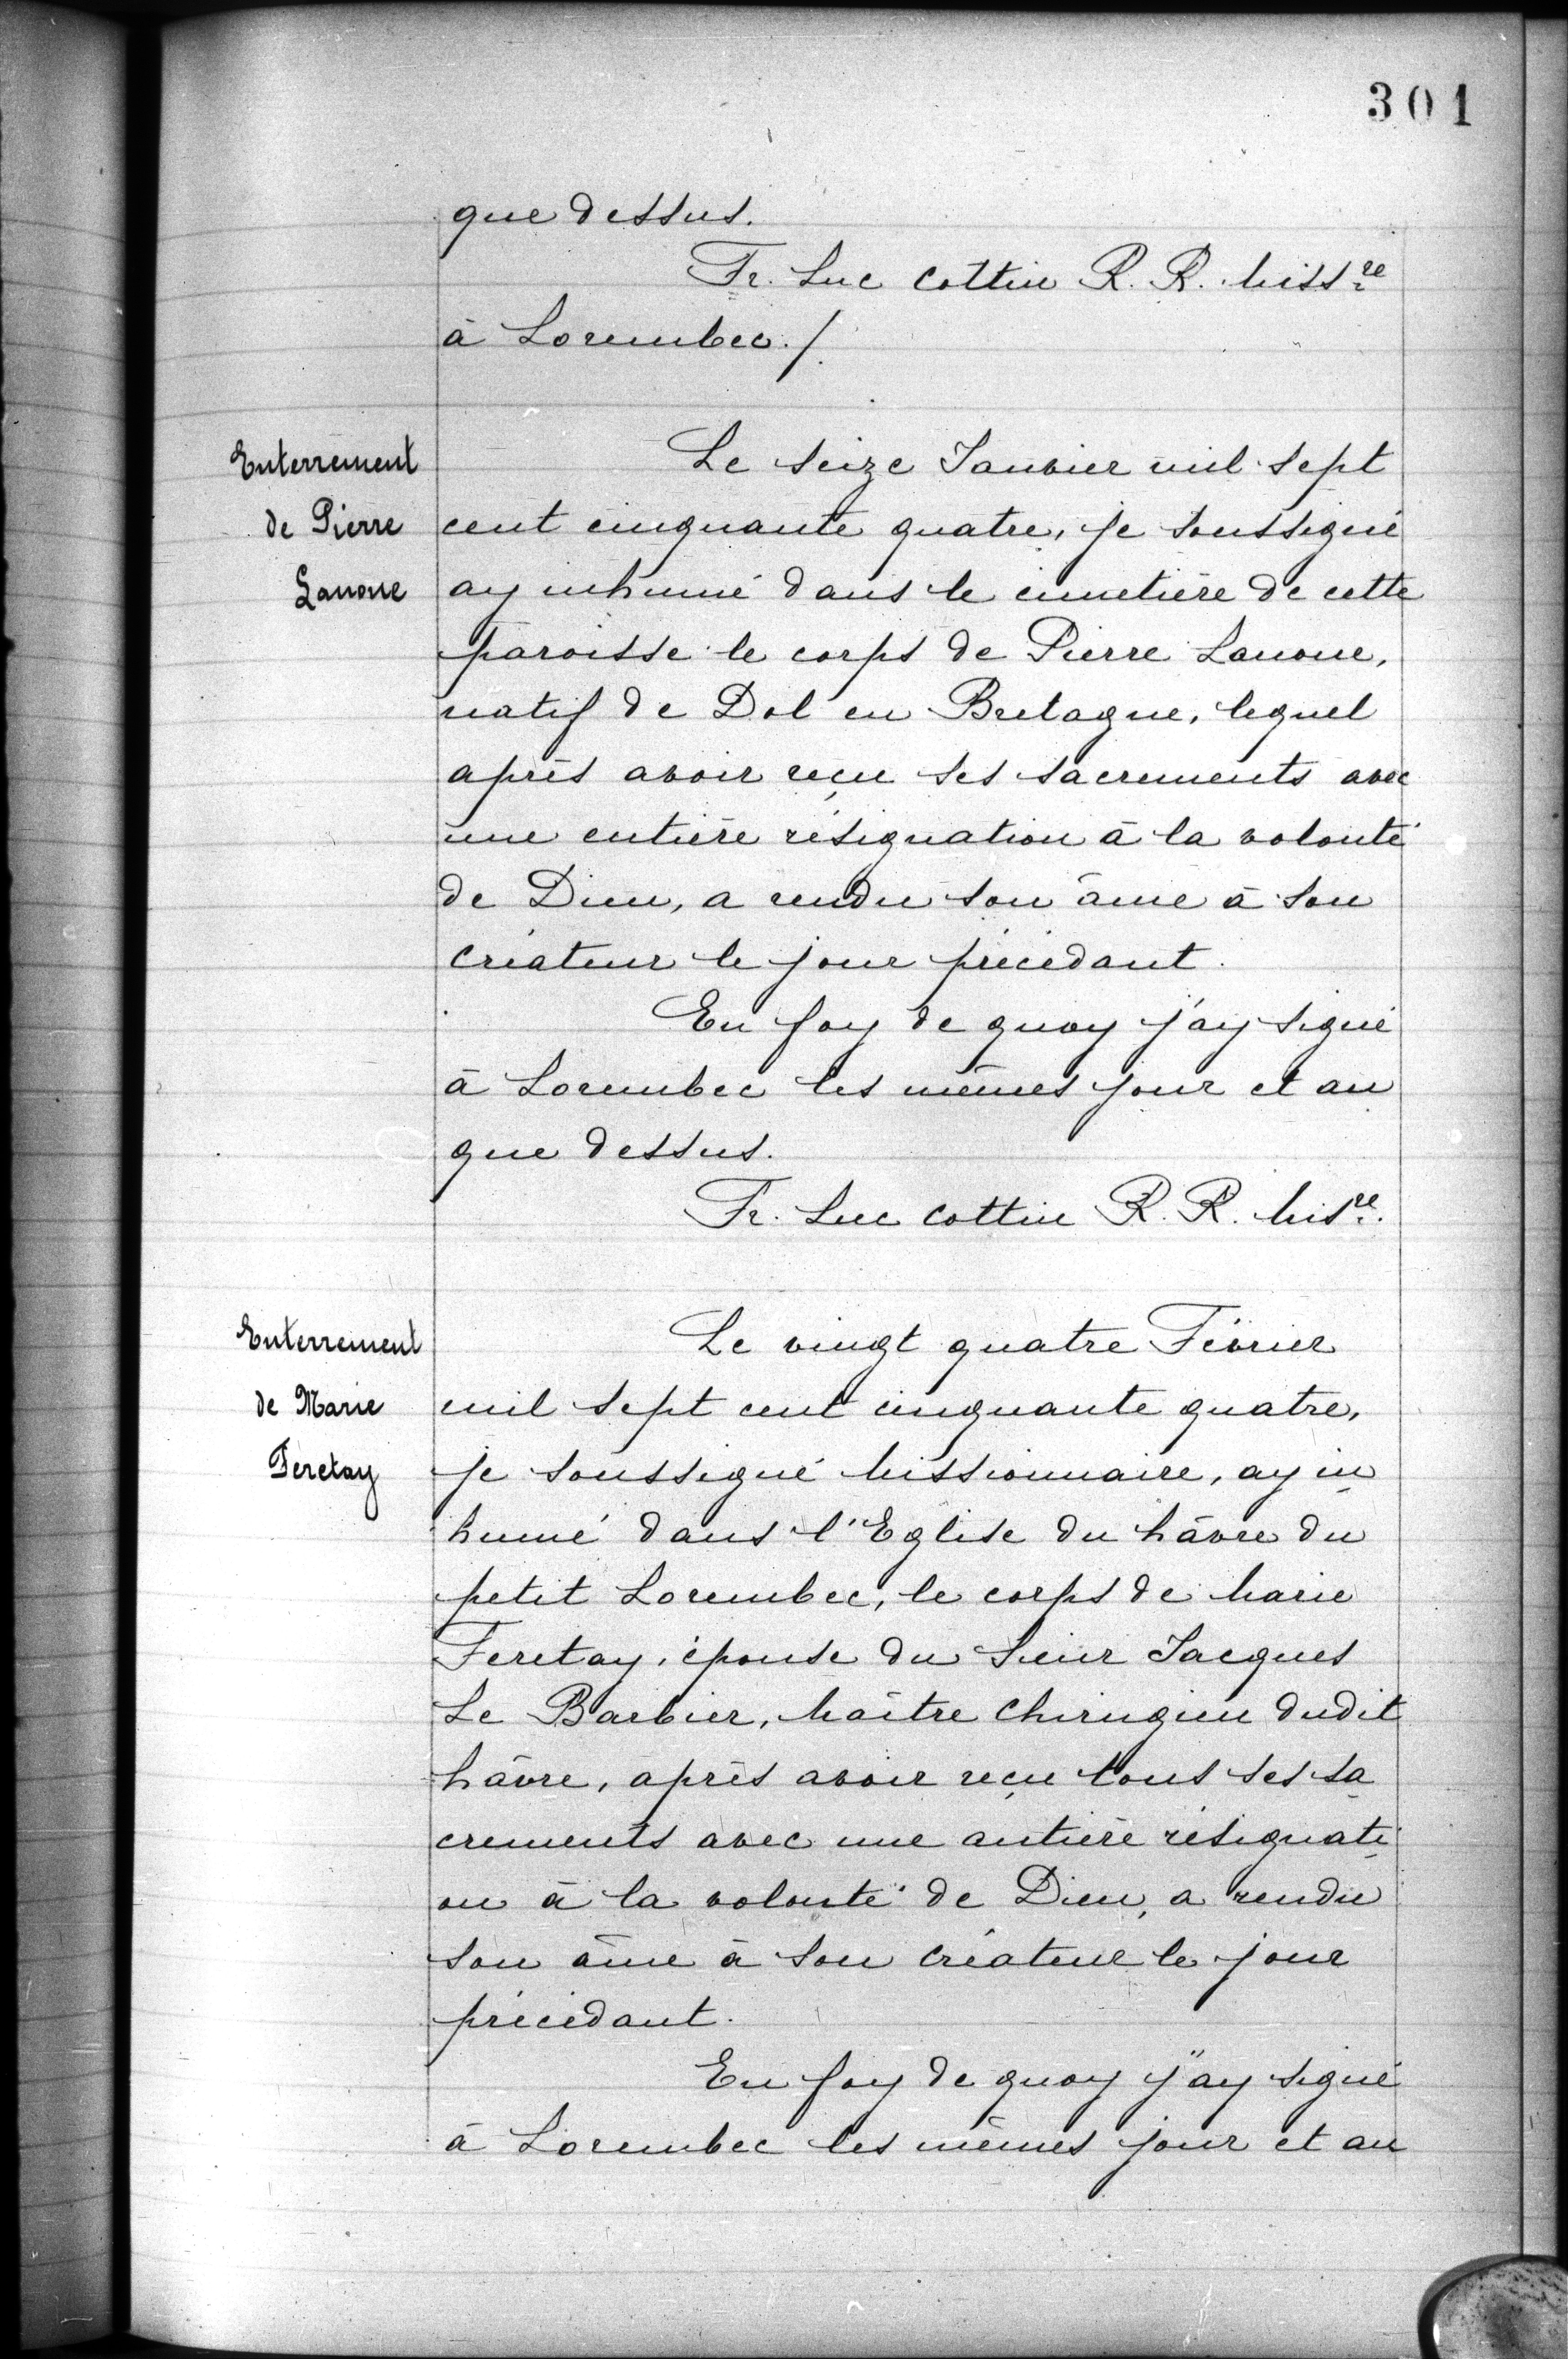 301
que dessus.
Fr. Luc Cottin R. R. Miss.re
à Lorembec./.
Enterrement
de Pierre
Lanoue
Le seize Janvier mil sept
cent cinquante quatre, je soussigné
ay inhumé dans le cimetière de cette
paroisse le corps de Pierre Lanoue,
natif de Dol en Bretagne, lequel
après avoir reçu ses sacrements avec
une entière résignation à la volonté
de Dieu, a rendu son âme à son
Créateur le jour précédant.
En foy de quoy j'ay signé
à Lorembec les mêmes jour et an
que dessus.
Fr. Luc Cottin R. R. Mis.re.
Enterrement
de Marie
Feretay
Le vingt quatre Février
mil sept cent cinquante quatre,
je soussigné Missionnaire, ay in
humé dans l'Eglise du hâvre du
petit Lorembec, le corps de Marie
Feretay, épouse du Sieur Jacques
Le Barbier, Maître Chirugien dudit
hâvre, après avoir reçu tous ses sa
crements avec une antière résignati
on à la volonté de Dieu, a rendu
son âme à son Créateur le jour
précédant.
En foy de quoy j'ay signé
à Lorembec les mêmes jour et an